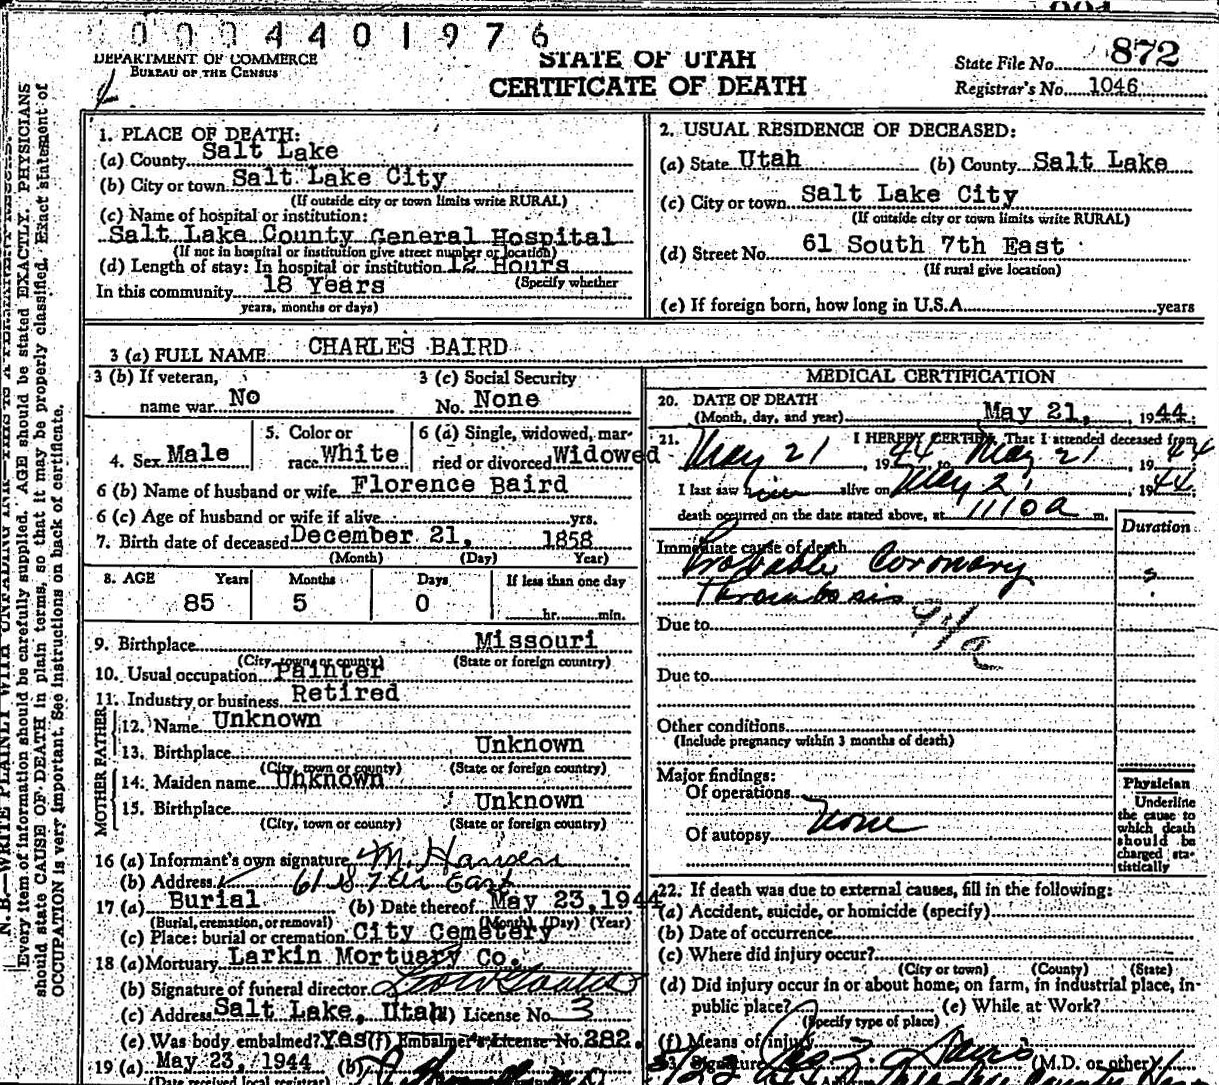 0 0 0 4 4 0 1 9 7 6
DEPARTMENT OF COMMERCE
BUREAU OF THE CENSUS
STATE OF UTAH
CERTIFICATE OF DEATH
State File No. 872
Registrar's No. 1046
N. B.—WRITE PLAINLY WITH UNFADING INK—THIS IS A PERMANENT RECORD.
Every item of information should be carefully supplied. AGE should be stated EXACTLY. PHYSICIANS
should state CAUSE OF DEATH in plain terms, so that it may be properly classified. Exact statement of
OCCUPATION is very important. See instructions on back of certificate.
1. PLACE OF DEATH:
(a) County Salt Lake
(b) City or town Salt Lake City
(If outside city or town limits write RURAL)
(c) Name of hospital or institution:
Salt Lake County General Hospital
(If not in hospital or institution give street number or location)
(d) Length of stay: In hospital or institution 12 Hours
(Specify whether
In this community 18 Years
years, months or days)
2. USUAL RESIDENCE OF DECEASED:
(a) State Utah (b) County Salt Lake
(c) City or town Salt Lake City
(If outside city or town limits write RURAL)
(d) Street No. 61 South 7th East
(If rural give location)
(e) If foreign born, how long in U.S.A. years
3 (a) FULL NAME CHARLES BAIRD
3 (b) If veteran, name war No
3 (c) Social Security No. None
4. Sex Male
5. Color or race White
6 (a) Single, widowed, married or divorced Widowed
6 (b) Name of husband or wife Florence Baird
6 (c) Age of husband or wife if alive yrs.
7. Birth date of deceased December 21, 1858
(Month) (Day) Year)
8. AGE Years Months Days If less than one day
85 5 0 hr. min.
9. Birthplace Missouri
(City, town or county) (State or foreign country)
10. Usual occupation Painter
11. Industry or business Retired
FATHER
12. Name Unknown
13. Birthplace Unknown
(City, town or county) (State or foreign country)
MOTHER
14. Maiden name Unknown
15. Birthplace Unknown
(City, town or county) (State or foreign country)
16 (a) Informant's own signature M. Hansen
(b) Address 61 S 7th East
17 (a) Burial (b) Date thereof May 23, 1944
(Burial, cremation, or removal) (Month) (Day) (Year)
(c) Place: burial or cremation City Cemetery
18 (a) Mortuary Larkin Mortuary Co.
(b) Signature of funeral director
(c) Address Salt Lake, Utah License No. 3
(e) Was body embalmed? Yes (f) Embalmer's License No. 282.
19 (a) May 23, 1944 (b)
(Date received local registrar)
MEDICAL CERTIFICATION
20. DATE OF DEATH
(Month, day, and year) May 21, 1944
21. I HEREBY CERTIFY, That I attended deceased from
May 21, 1944 to May 21, 1944
I last saw him alive on May 21, 1944
death occurred on the date stated above, at 1110 a m.
Duration
Immediate cause of death
Probable Coronary
Thrombosis
Due to 94a
Due to
Other conditions
(Include pregnancy within 3 months of death)
Major findings:
Of operations
Of autopsy None
Physician
Underline
the cause to
which death
should be
charged sta-
tistically
22. If death was due to external causes, fill in the following:
(a) Accident, suicide, or homicide (specify)
(b) Date of occurrence
(c) Where did injury occur?
(City or town) (County) (State)
(d) Did injury occur in or about home, on farm, in industrial place, in-
public place? (e) While at Work?
(Specify type of place)
(f) Means of injury
23. Signature (M.D. or other)